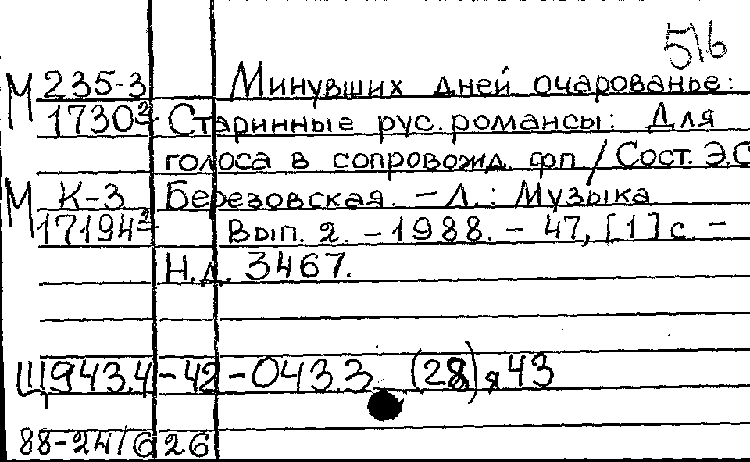 516
М 235-3 Минувших дней очарованье:
17303 Старинные рус. романсы: Для
голоса в сопровожд. фп / Сост. Э.С
М К-3 Березовская. – Л.: Музыка
171943 Вып. 2. – 1988. – 47, [1] с. –
Н.д. 3467.
Щ943.4-42-043.3 (28)я43
88-24/626